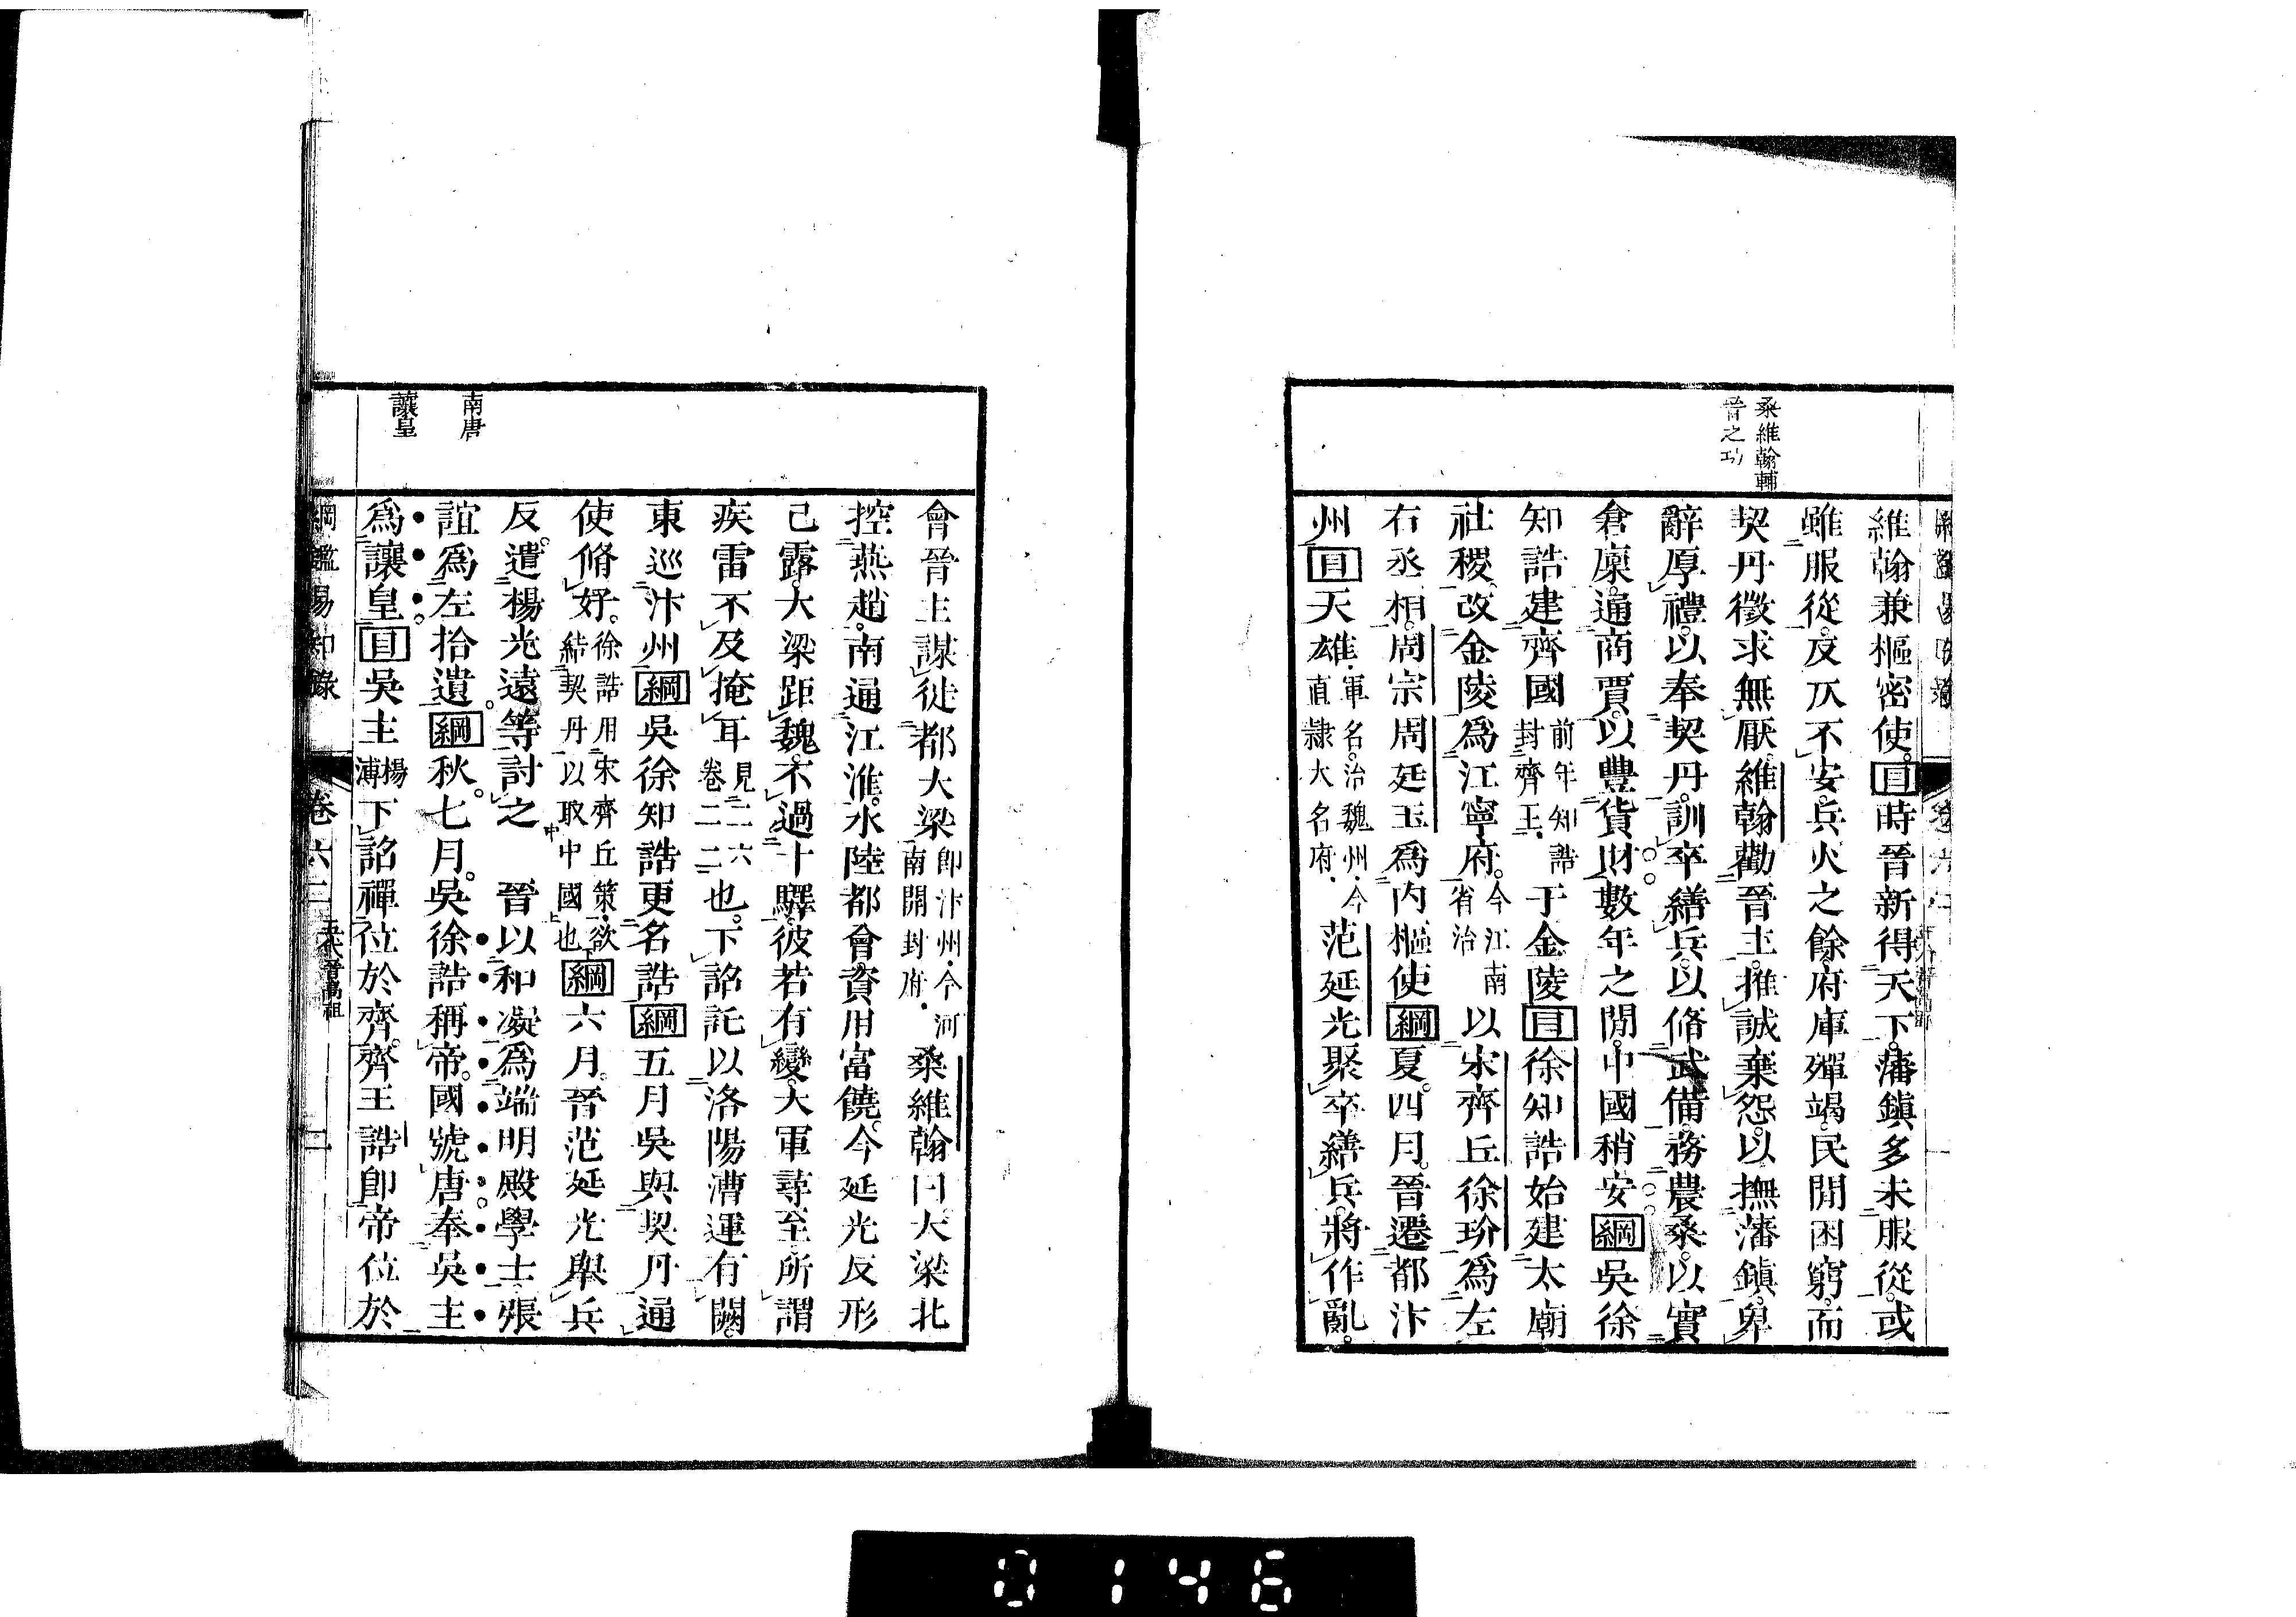 桑維翰輔
晉之功
維翰兼樞密使。目時晉新得天下。藩鎮多未服從。或
雖服從。反仄不安。兵火之餘。府庫殫竭。民閒困窮。而
契丹徵求無厭。維翰勸晉主。推誠棄怨。以撫藩鎮。卑
辭厚禮。以奉契丹。訓卒繕兵。以脩武備。務農桑。以實
倉廩。通商賈。以豐貨財。數年之閒。中國稍安綱吳徐
知誥建齊國前年知誥封齊王.于金陵目徐知誥始建太廟
社稷。改金陵爲江寧府。今江南省治以宋齊丘徐玠爲左
右丞相。周宗周廷玉爲內樞使綱夏。四月。晉遷都汴
州目天雄.軍名。治魏州.今直隸大名府.范延光聚卒繕兵。將作亂。
南唐
讓皇
會晉主謀徙都大梁卽汴州.今河南開封府.桑維翰曰。大梁北
控燕趙。南通江淮。水陸都會。資用富饒。今延光反形
已露。大梁距魏。不過十驛。彼若有變。大軍尋至。所謂
疾雷不及掩耳見二六卷二二也。下詔託以洛陽漕運有闕。
東巡汴州綱吳徐知誥更名誥綱五月吳與契丹通
使脩好。徐誥用宋齊丘策.欲結契丹以取中國也綱六月。晉范延光舉兵
反。遣楊光遠等討之　晉以和凝爲端明殿學士。張
誼爲左拾遺。綱秋。七月。吳徐誥稱帝。國號唐。奉吳主
爲讓皇。目吳主楊溥下詔禪位於齊。齊王誥卽帝位於
綱鑑易知錄　卷六三　五代晉高祖　二